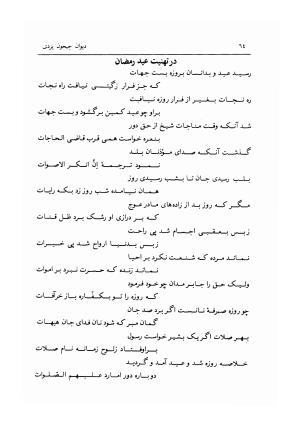 ٦٤
دیوان جیحون یزدی
در تهنیت عید رمضان
رسید عید و بدانسان بروزه بست جهات
که جز فرار ز گیتی نیافت راه نجات
ره نجات بغیر از فرار روزه نیافت
براو چو عید کمین برگشود و بست جهات
شد آنکه وقت مناجات شیخ از حق دور
بنعره خواست همی قرب قاضی الحاجات
گذشت آنکه صدای مؤذنان بلد
نمود ترجمهٔ اِنَّ انکر الاصوات
بلب رسیدی جان تا بشب رسیدی روز
همان نیامده شب روز زد بکه رایات
مگر که روز بد از زاده‌های مادر عوج
که بر درازی او رشک برد ظل قنات
ز بس بعقبی اجسام شد پی راحت
ز بس بدنیا ارواح شد پی خیرات
نماند مرده که شنعت نکرد بر احیا
نماند زنده که حسرت نبرد بر اموات
ولیک حق را جابر مدان چو خود فرمود
که روزه را تو بکفّاره باز خرآفات
چو روزه صرفهٔ نانست اگر برد صد جان
گمان مبر که شود نان فدای جان هیهات
بهر صلات اگر یک بشیر خواست رسول
براوفتاد ز لوح زمانه نام صلات
خلاصه روزه شد و عید آمد و گردید
دوباره دور امارد علیهم الصلوات